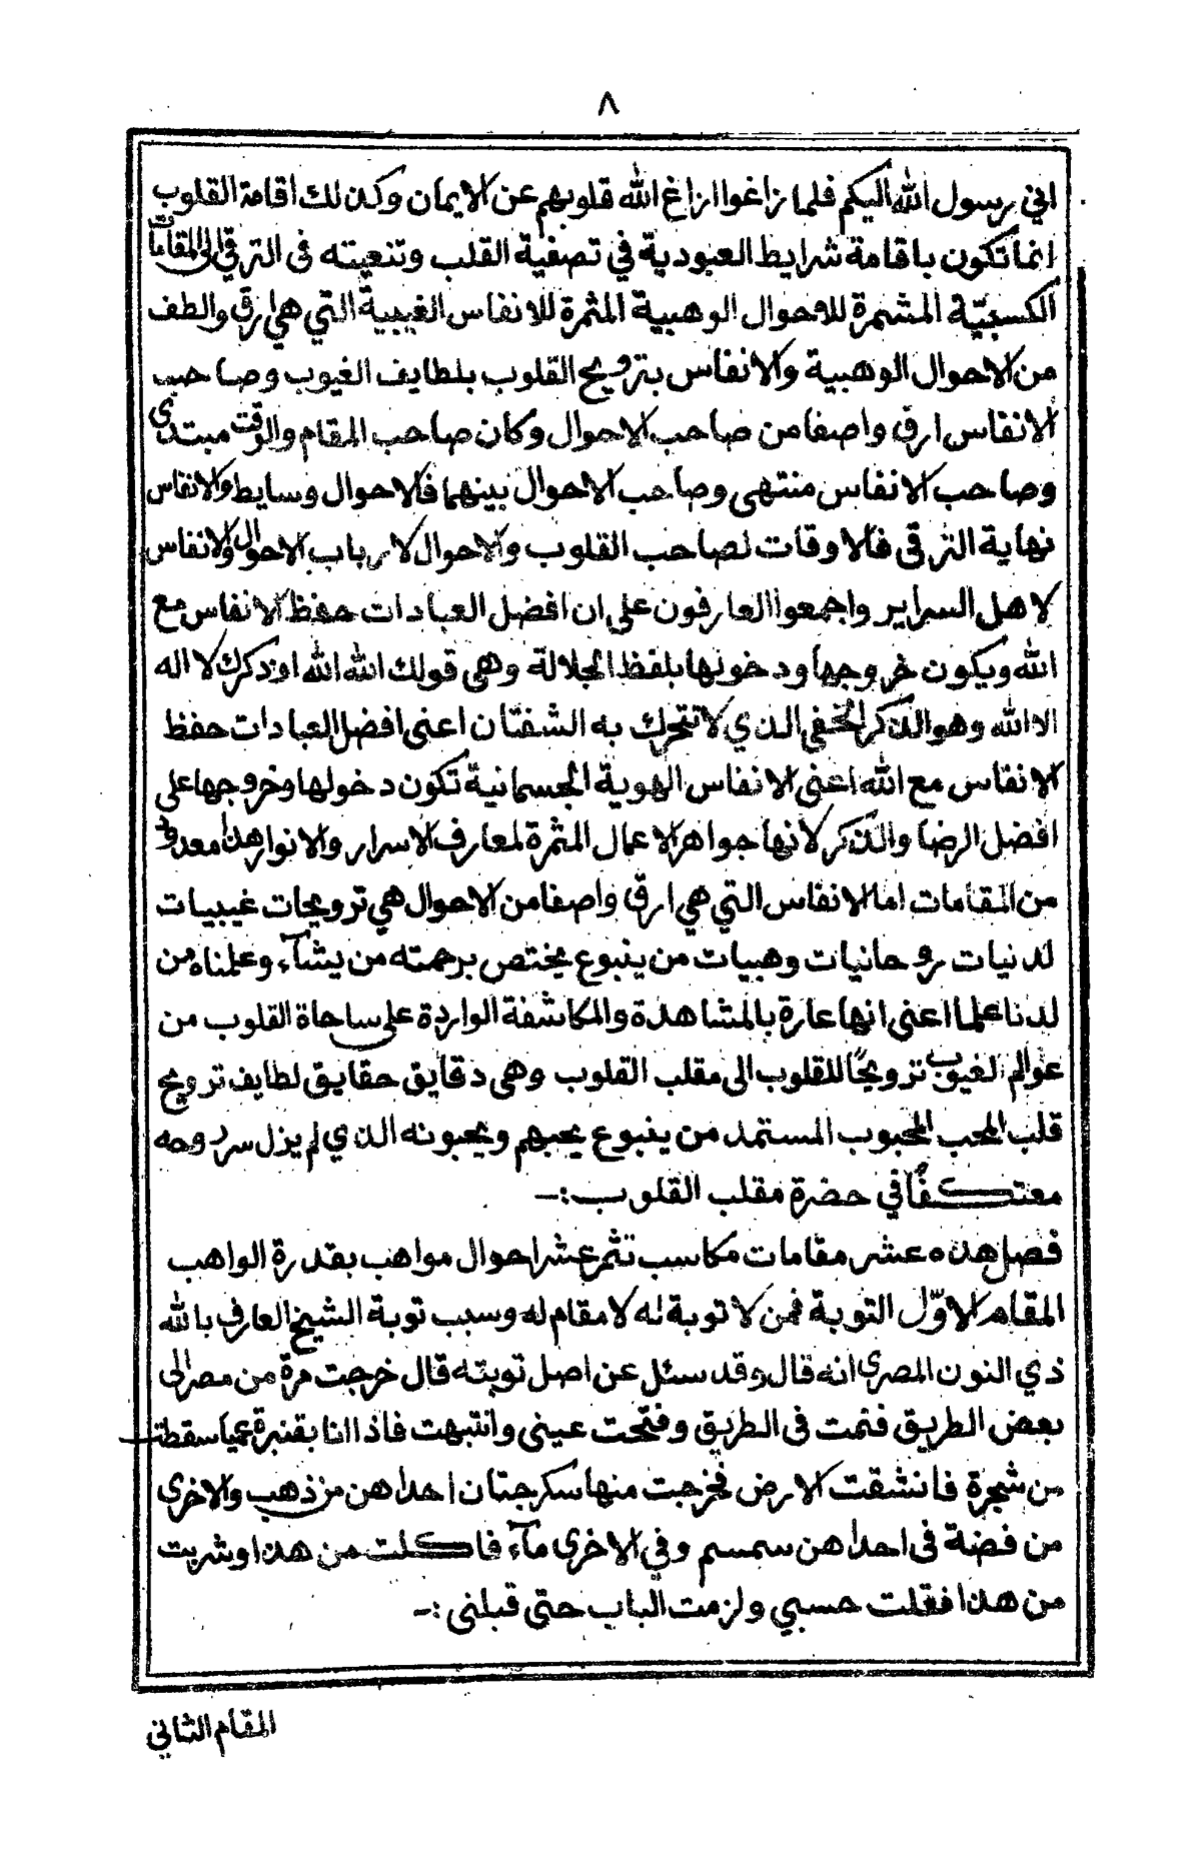 ٨
اني رسول الله اليكم فلما زاغوا ازاغ الله قلوبهم عن الايمان وكذلك اقامة القلوب
انما تكون باقامة شرايط العبودية في تصفية القلب وتنعيته في الترقي الى المقامات
الكسبيّة المثمرة للاحوال الوهبية المثمرة للانفاس الغيبية التي هي ارق والطف
من الاحوال الوهبية والانفاس بترويح القلوب بلطايف الغيوب وصاحب
الانفاس ارق واصفا من صاحب الاحوال وكان صاحب المقام والوقت مبتدي
وصاحب الانفاس منتهى وصاحب الاحوال بينهما فالاحوال وسايط والانفاس
نهاية الترقي فالاوقات لصاحب القلوب والاحوال لارباب الاحوال والانفاس
لاهل السراير واجمعوا العارفون على ان افضل العبادات حفظ الانفاس مع
الله ويكون خروجها ودخولها بلفظ الجلالة وهي قولك الله الله او ذكرك لا اله
الا الله وهو الذكر الخفي الذي لا تتحرك به الشفتان اعنى افضل العبادات حفظ
الانفاس مع الله اعنى الانفاس الهوية الجسمانية تكون دخولها وخروجها على
افضل الرضا والذكر لانها جواهر الاعمال المثمرة لمعارف الاسرار والانوار هذا معدود
من المقامات اما الانفاس التي هي ارق واصفا من الاحوال هي ترويحات غيبيات
لدنيات روحانيات وهبيات من ينبوع يختص برحمته من يشآء وعلمناه من
لدنا علما اعنى انها عارة بالمشاهدة والمكاشفة الواردة على ساحاة القلوب من
عوالم الغيوب ترويحًا للقلوب الى مقلب القلوب وهي دقايق حقايق لطايف ترويح
قلب المحب المحبوب المستمد من ينبوع يحبهم ويحبونه الذي لم يزل سر روحه
معتكفًا في حضرة مقلب القلوب :ـ
فصل هذه عشر مقامات مكاسب تثمر عشر احوال مواهب بقدرة الواهب
المقام الاوّل التوبة فمن لا توبة له لا مقام له وسبب توبة الشيخ العارف بالله
ذي النون المصري انه قال وقد سئل عن اصل توبته قال خرجت مرة من مصر الى
بعض الطريق فنمت في الطريق وفتحت عيني وانتبهت فاذا انا بقنبرة عميا سقطت
من شجرة فانشقت الارض فخرجت منها سكرجتان احداهن من ذهب والاخرى
من فضة في احداهن سمسم وفي الاخرى مآء فاكلت من هذا وشربت
من هذا فقلت حسبي ولزمت الباب حتى قبلني :ـ
المقام الثاني